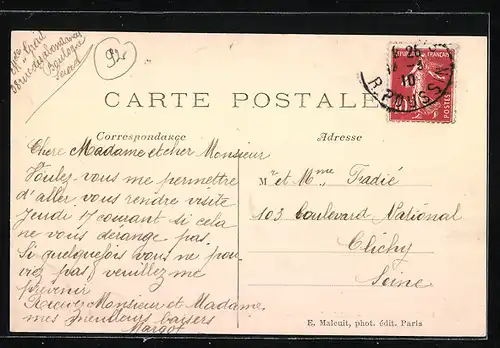 92
CARTE POSTALE
Correspondance
Adresse
FRANÇAISE
POSTES
25
10
R. POUSSIN
Chere Madame et cher Monsieur
Voulez-vous me permettre
d'aller vous rendre visite
Jeudi 17 courant si cela
ne vous dérange pas.
Si quelquefois vous ne pou
viez pas, veuillez me
prevenir
Recevez Monsieur et Madame
mes meilleurs baisers
Margot
Mr et Mme Tadié
103 boulevard National
Clichy
Seine
E. Malcuit, phot. édit. Paris